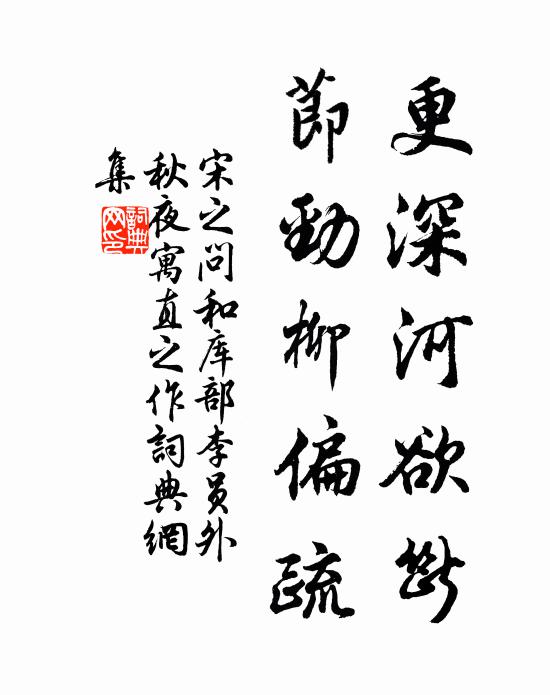 更深河欲断
節勁柳偏疏
宋之问和库部李员外
秋夜寓直之作詞典網
集
詞典
网印